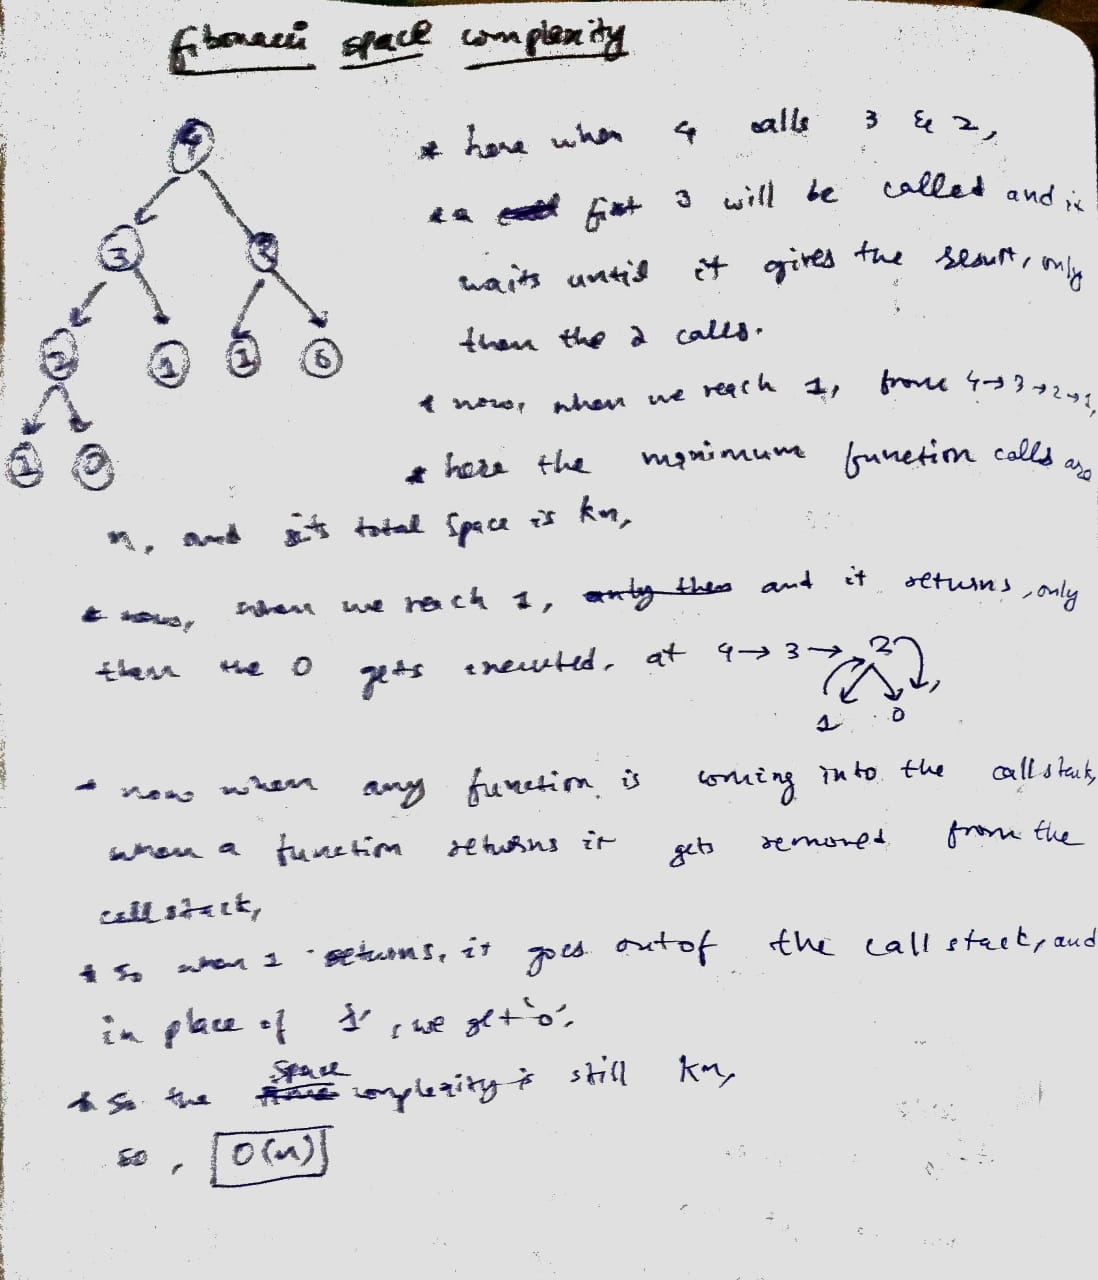 fibonacci space complexity
4
3 2
2 1 1 0
1 0
* here when 4 calls 3 & 2,
first 3 will be called and it
waits until it gives the result, only
then the 2 calls.
* now, when we reach 1, from 4→3→2→1,
* here the maximum function calls are
n, and its total space is kn,
* now, when we reach 1, only then and it returns, only
then the 0 gets executed, at 4→3→2,
1 0
* now when any function is coming into the callstack,
when a function returns it gets removed from the
call stack,
* so when 1 returns, it goes out of the call stack, and
in place of 1, we get '0'.
space
* So the time complexity is still kn,
so, O(n)